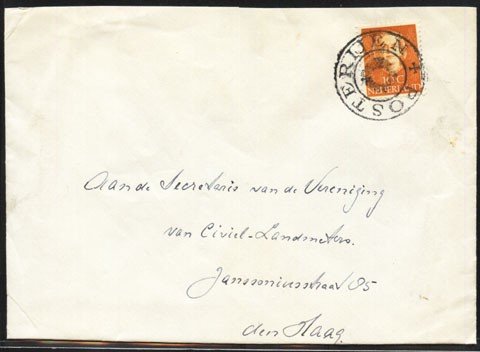 POSTERIJEN +
10 C
NEDERLAND
Aan de Secretaris van de Vereniging
van Civiel-Landmeters.
Janssoniusstraat 95
den Haag.